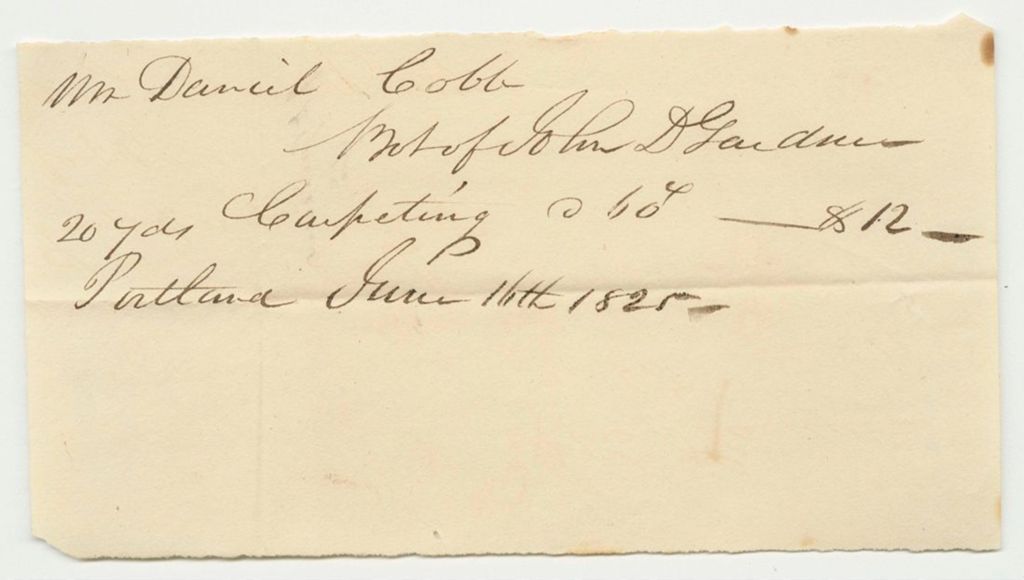 Mr Daniel Cobb
Bot of John D Gardner
20 yds Carpeting @ 60 cts — $12 —
Portland June 16th 1825 —